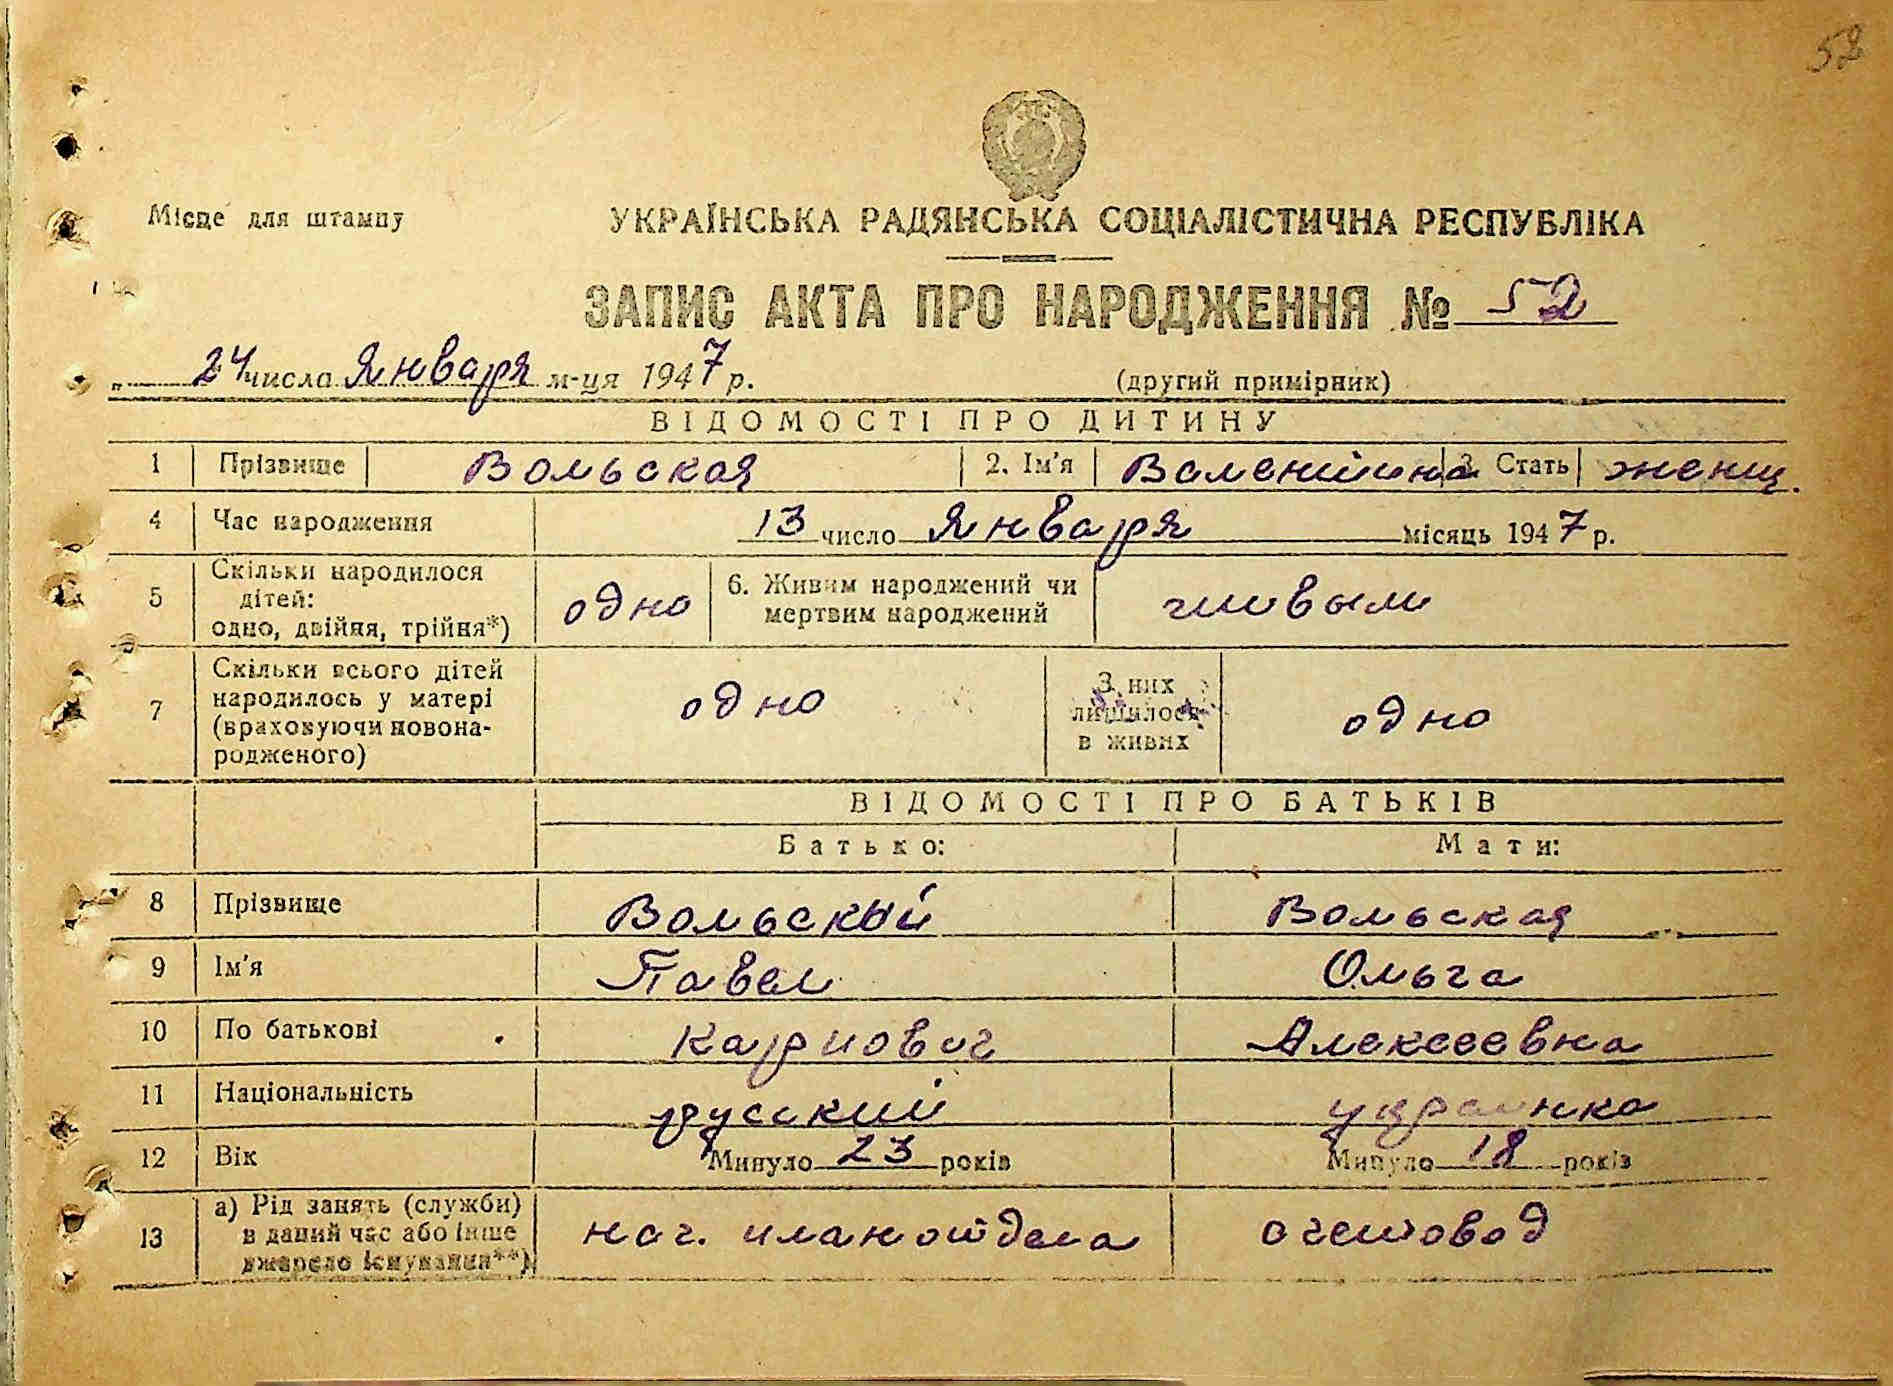 52
Місце для штампу
УКРАЇНСЬКА РАДЯНСЬКА СОЦІАЛІСТИЧНА РЕСПУБЛІКА
ЗАПИС АКТА ПРО НАРОДЖЕННЯ № 52
„ 24 числа Января м-ця 1947 р. (другий примірник)
ВІДОМОСТІ ПРО ДИТИНУ
1 Прізвище Вольская 2. Ім'я Валентина 3. Стать женщ.
4 Час народження 13 число Января місяць 1947 р.
5 Скільки народилося дітей: одно, двійня, трійня*) одно 6. Живим народжений чи мертвим народжений живым
7 Скільки всього дітей народилось у матері (враховуючи новонародженого) одно З них лишилося в живих одно
ВІДОМОСТІ ПРО БАТЬКІВ
Батько: Мати:
8 Прізвище Вольский Вольская
9 Ім'я Павел Ольга
10 По батькові Карпович Алексеевна
11 Національність русский украинка
12 Вік Минуло 23 років Минуло 18 років
13 а) Рід занять (служби) в даний час або інше джерело існування**) нач. планотдела счетовод